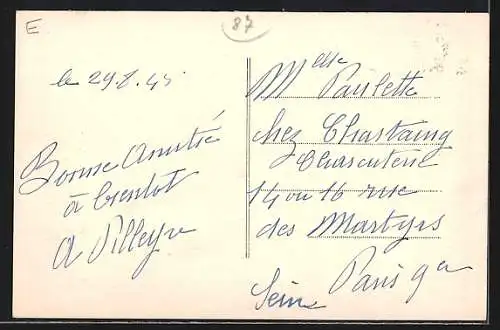 E
87
le 29.8.45
Bonne Amitié
à bientot
A Pilleyre
Melle Paulette
chez Chastaing
Charcuterie
14 ou 16 rue
des Martyrs
Paris 9e
Seine